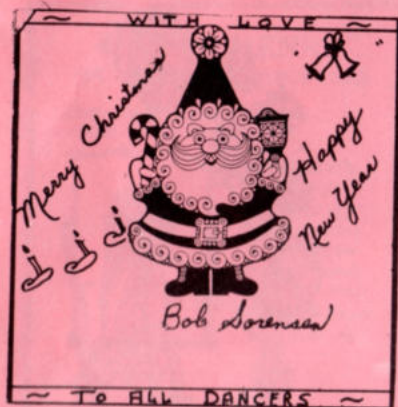 ~ WITH LOVE ~
Merry Christmas
Happy
New Year
Bob Sorensen
~ TO ALL DANCERS ~